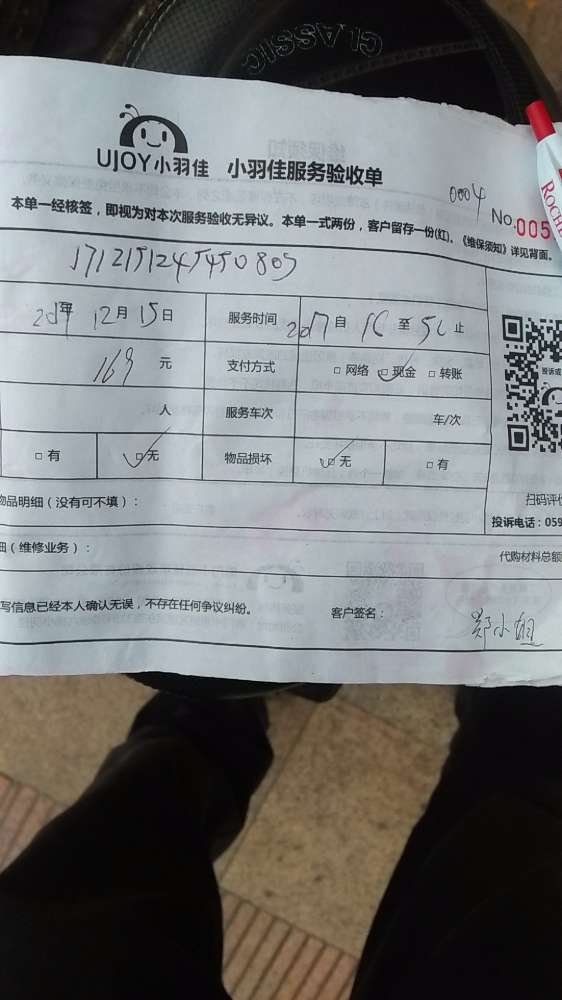 CLASSIC
UJOY小羽佳 小羽佳服务验收单
0004
No.005
ROCHE
本单一经核签，即视为对本次服务验收无异议。本单一式两份，客户留存一份(红)。《维保须知》详见背面。
171215124545080
年 12月15日 服务时间 2017自 至 止
169 元 支付方式 □网络 □现金 □转账
人 服务车次 车/次
□有 □无 物品损坏 □无 □有
物品明细（没有可不填）： 扫码评
投诉电话：059
（维修业务）： 代购材料总额
写信息已经本人确认无误，不存在任何争议纠纷。 客户签名： 郑小姐